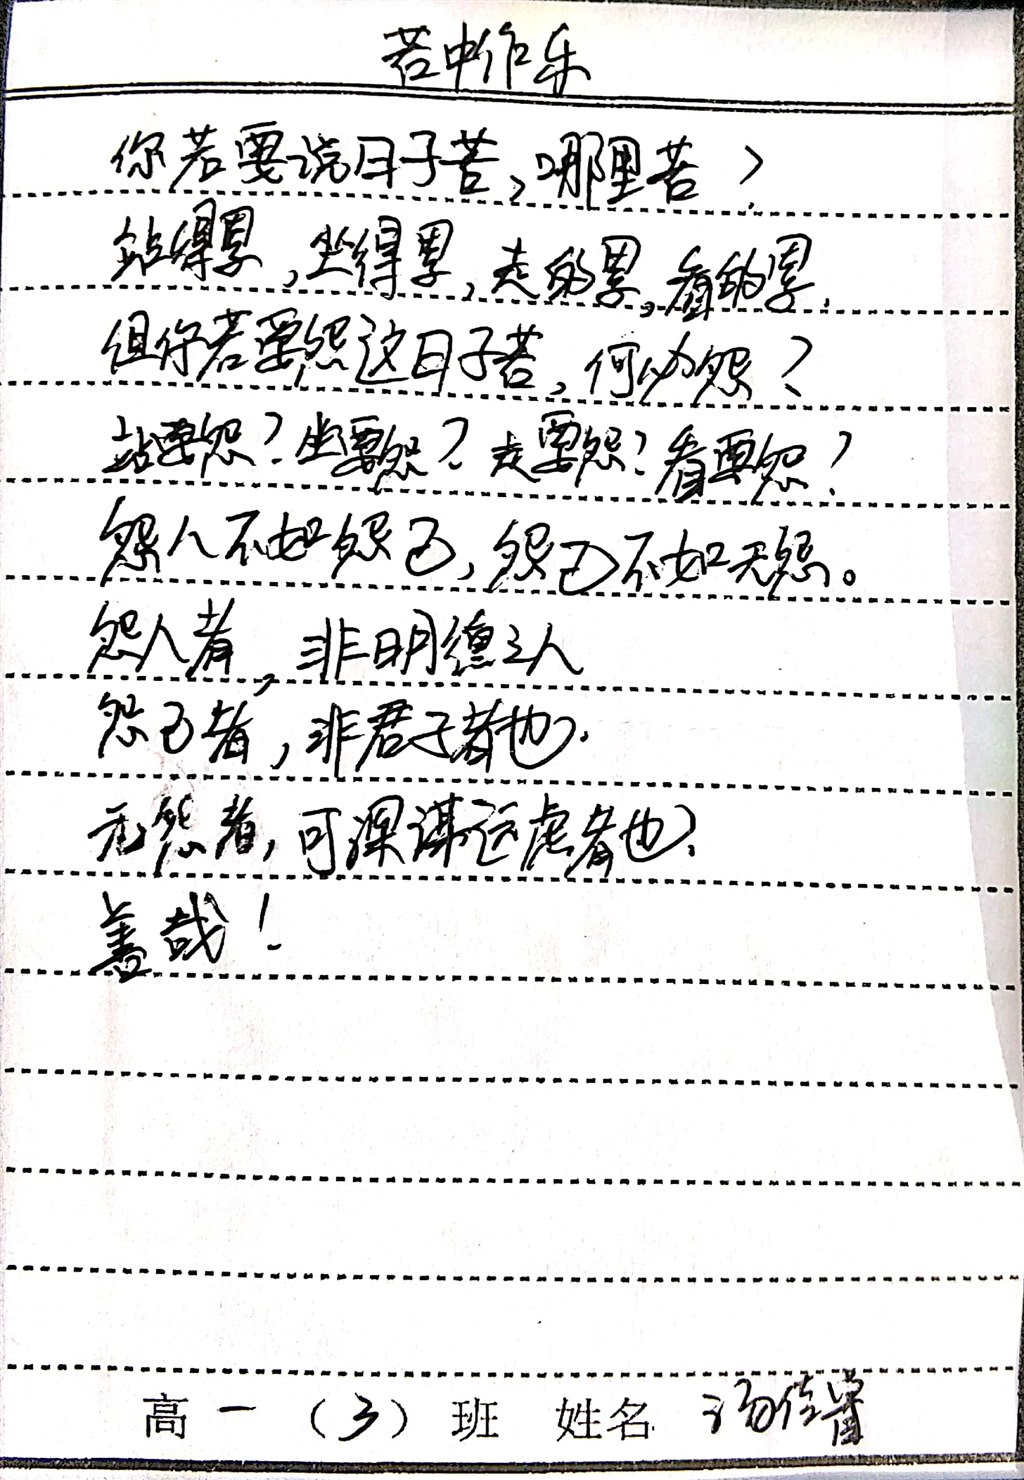 苦中作乐
你若要说日子苦，哪里苦？
站得累，坐得累，走的累，看的累．
但你若要怨这日子苦，何必怨？
站要怨？坐要怨？走要怨？看要怨？
怨人不如怨己，怨己不如无怨。
怨人者，非明德之人
怨己者，非君子者也．
无怨者，可深谋远虑者也．
善哉！
高一（3）班 姓名 汤佳